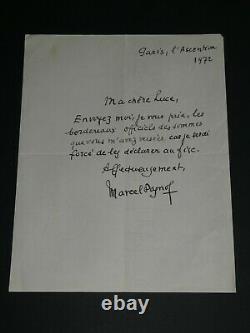 Paris, l'Ascension
1972
Ma chère Luce,
Envoyez moi, je vous prie, les
bordereaux officiels des sommes
que vous m'avez versées, car je serai
forcé de les déclarer au fisc.
Affectueusement,
Marcel Pagnol
ebay